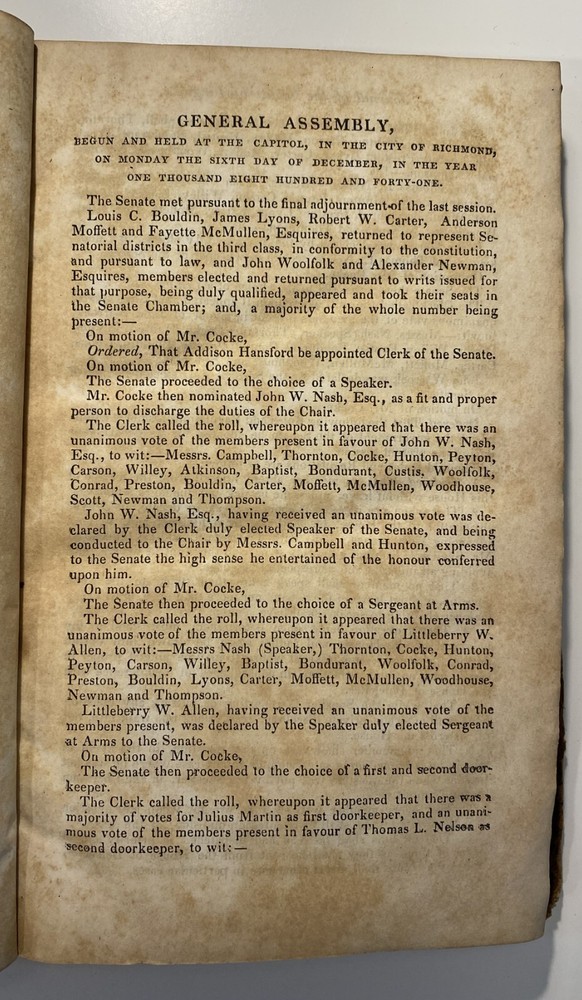 GENERAL ASSEMBLY,
BEGUN AND HELD AT THE CAPITOL, IN THE CITY OF RICHMOND,
ON MONDAY THE SIXTH DAY OF DECEMBER, IN THE YEAR
ONE THOUSAND EIGHT HUNDRED AND FORTY-ONE.
The Senate met pursuant to the final adjournment of the last session.
Louis C. Bouldin, James Lyons, Robert W. Carter, Anderson
Moffett and Fayette McMullen, Esquires, returned to represent Se-
natorial districts in the third class, in conformity to the constitution,
and pursuant to law, and John Woolfolk and Alexander Newman,
Esquires, members elected and returned pursuant to writs issued for
that purpose, being duly qualified, appeared and took their seats in
the Senate Chamber; and, a majority of the whole number being
present:—
On motion of Mr. Cocke,
Ordered, That Addison Hansford be appointed Clerk of the Senate.
On motion of Mr. Cocke,
The Senate proceeded to the choice of a Speaker.
Mr. Cocke then nominated John W. Nash, Esq., as a fit and proper
person to discharge the duties of the Chair.
The Clerk called the roll, whereupon it appeared that there was an
unanimous vote of the members present in favour of John W. Nash,
Esq., to wit:—Messrs. Campbell, Thornton, Cocke, Hunton, Peyton,
Carson, Willey, Atkinson, Baptist, Bondurant, Custis, Woolfolk,
Conrad, Preston, Bouldin, Carter, Moffett, McMullen, Woodhouse,
Scott, Newman and Thompson.
John W. Nash, Esq., having received an unanimous vote was de-
clared by the Clerk duly elected Speaker of the Senate, and being
conducted to the Chair by Messrs. Campbell and Hunton, expressed
to the Senate the high sense he entertained of the honour conferred
upon him.
On motion of Mr. Cocke,
The Senate then proceeded to the choice of a Sergeant at Arms.
The Clerk called the roll, whereupon it appeared that there was an
unanimous vote of the members present in favour of Littleberry W.
Allen, to wit:—Messrs Nash (Speaker,) Thornton, Cocke, Hunton,
Peyton, Carson, Willey, Baptist, Bondurant, Woolfolk, Conrad,
Preston, Bouldin, Lyons, Carter, Moffett, McMullen, Woodhouse,
Newman and Thompson.
Littleberry W. Allen, having received an unanimous vote of the
members present, was declared by the Speaker duly elected Sergeant
at Arms to the Senate.
On motion of Mr. Cocke,
The Senate then proceeded to the choice of a first and second door-
keeper.
The Clerk called the roll, whereupon it appeared that there was a
majority of votes for Julius Martin as first doorkeeper, and an unani-
mous vote of the members present in favour of Thomas L. Nelson as
second doorkeeper, to wit:—